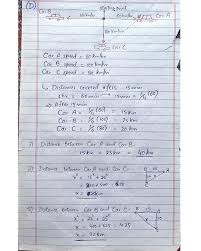 ①
Starting point
Car B
Car A
Car C
Car A speed = 60 km/hr
Car B speed = 100 km/hr
Car C speed = 80 km/hr
Distance covered after 15 min
1 hr = 60 min
After 15 min
Car A = 1/4 (60) = 15 km
Car B = 1/4 (100) = 25 km
Car C = 1/4 (80) = 20 km
i) Distance between Car A and Car B.
15 km + 25 km = 40 km
ii) Distance between Car A and Car C
x² = 15² + 20²
x = 25 km
Distance between Car B and Car C
x² = 25² + 20²
x = 400 + 625 = 1025
x = 32 km